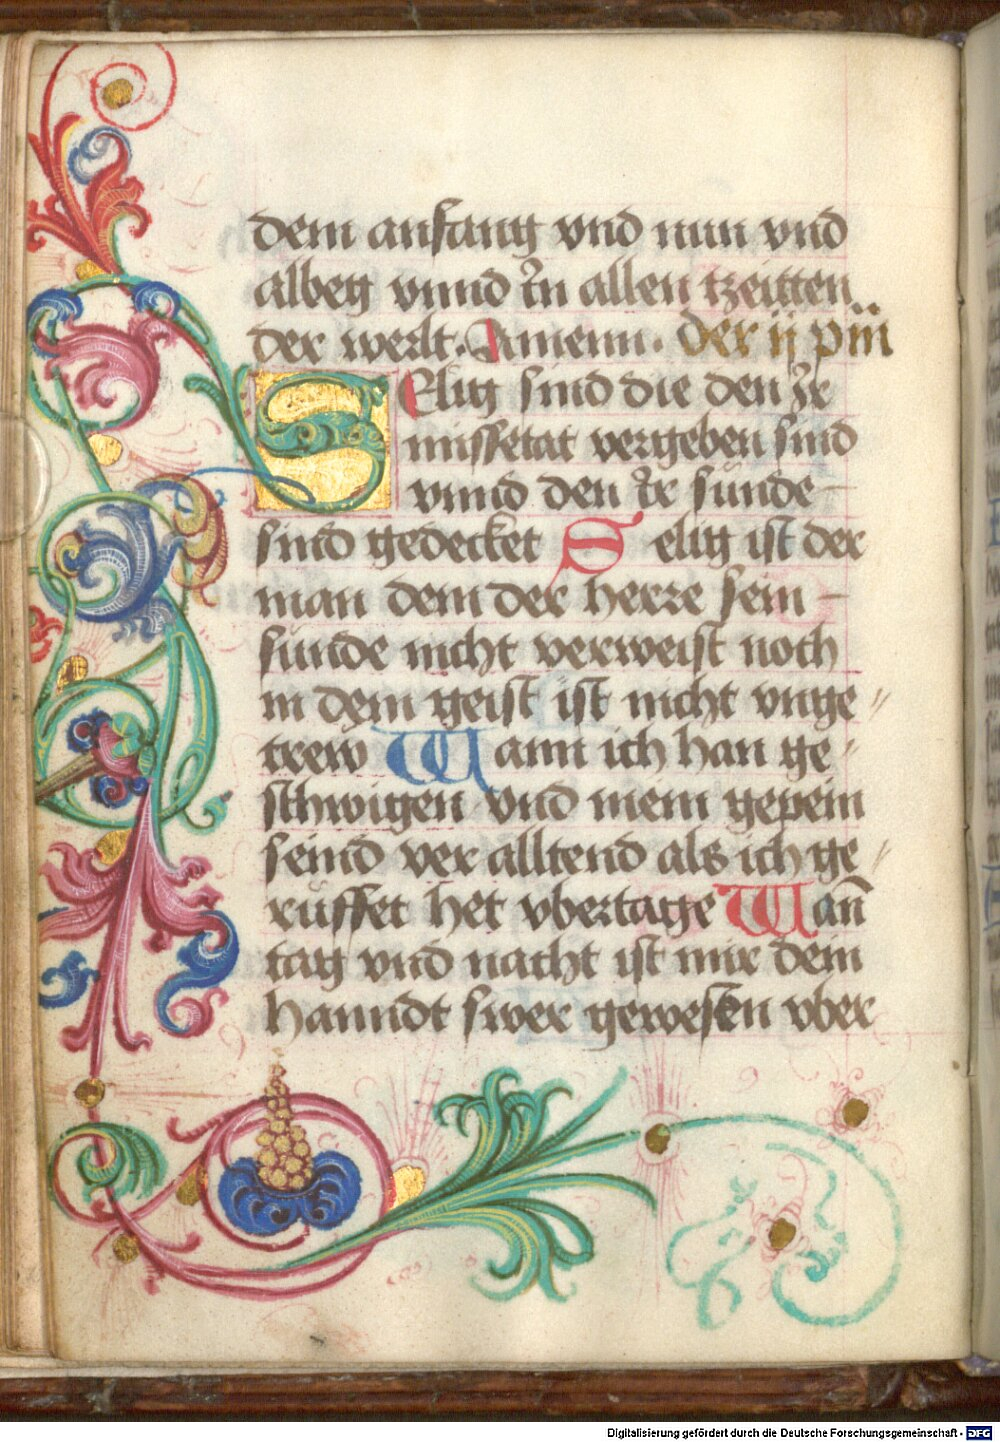 dem anfang vnd nun vnd
albeg vnnd in allen tzeitten
der werlt. Amenn. der ij psm
SElig sind die den Ir
missetat vergeben sind
vnnd den ir sünde
sind gedecket Selig ist der
man dem der herre sein
sunde nicht verweist noch
in dem geist ist nicht vnge
trew Wann ich han ge
schwigen vnd mein gepein
seind ver alltend als ich ge
rüffet het vbertage Wan̄
tag vnd nacht ist mir dein
hanndt swer gewesen vber
Digitalisierung gefördert durch die Deutsche Forschungsgemeinschaft - DFG